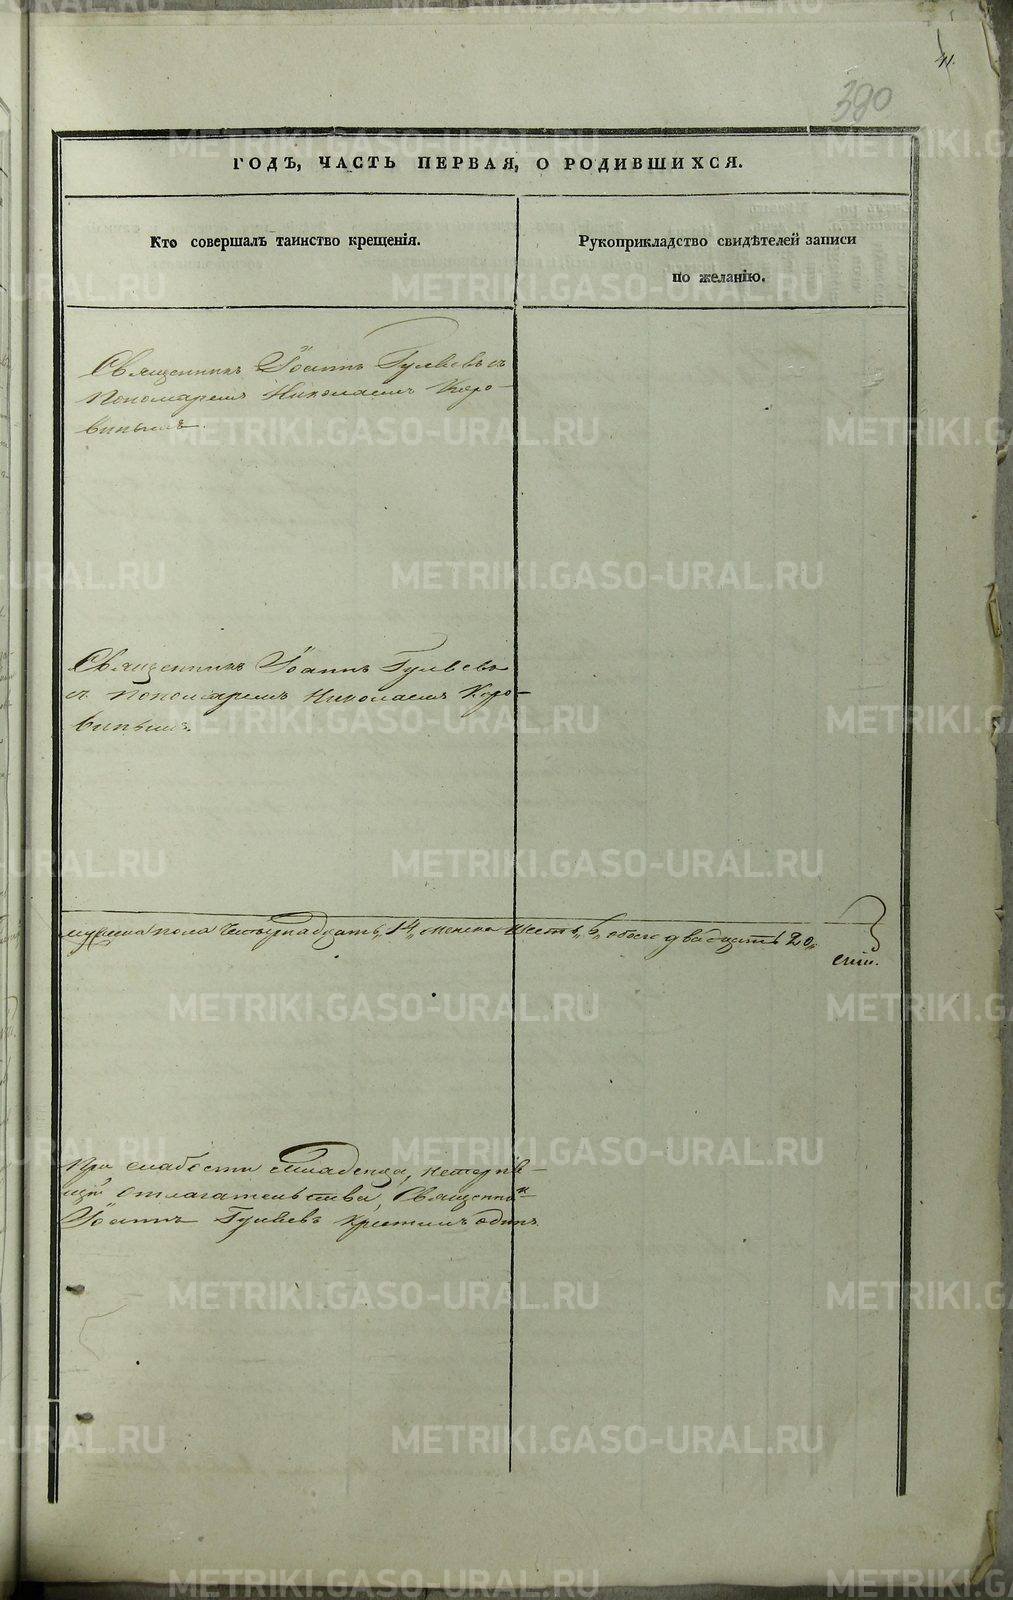 41.
380
ГОДЪ, ЧАСТЬ ПЕРВАЯ, О РОДИВШИХСЯ.
Кто совершалъ таинство крещенія.
Рукоприкладство свидѣтелей записи
по желанію.
Священникъ Іоаннъ Гуляевъ съ
Пономаремъ Николаемъ Коро-
винымъ.
Священникъ Іоаннъ Гуляевъ
съ Пономаремъ Николаемъ Коро-
винымъ.
мужеска пола четырнадцать „14„ женска шесть „6„ обоего двадцать „20„
При слабости младенца, нетерпѣ-
щей отлагательства, Священникъ
Іоаннъ Гуляевъ крестилъ одинъ.
METRIKI.GASO-URAL.RU